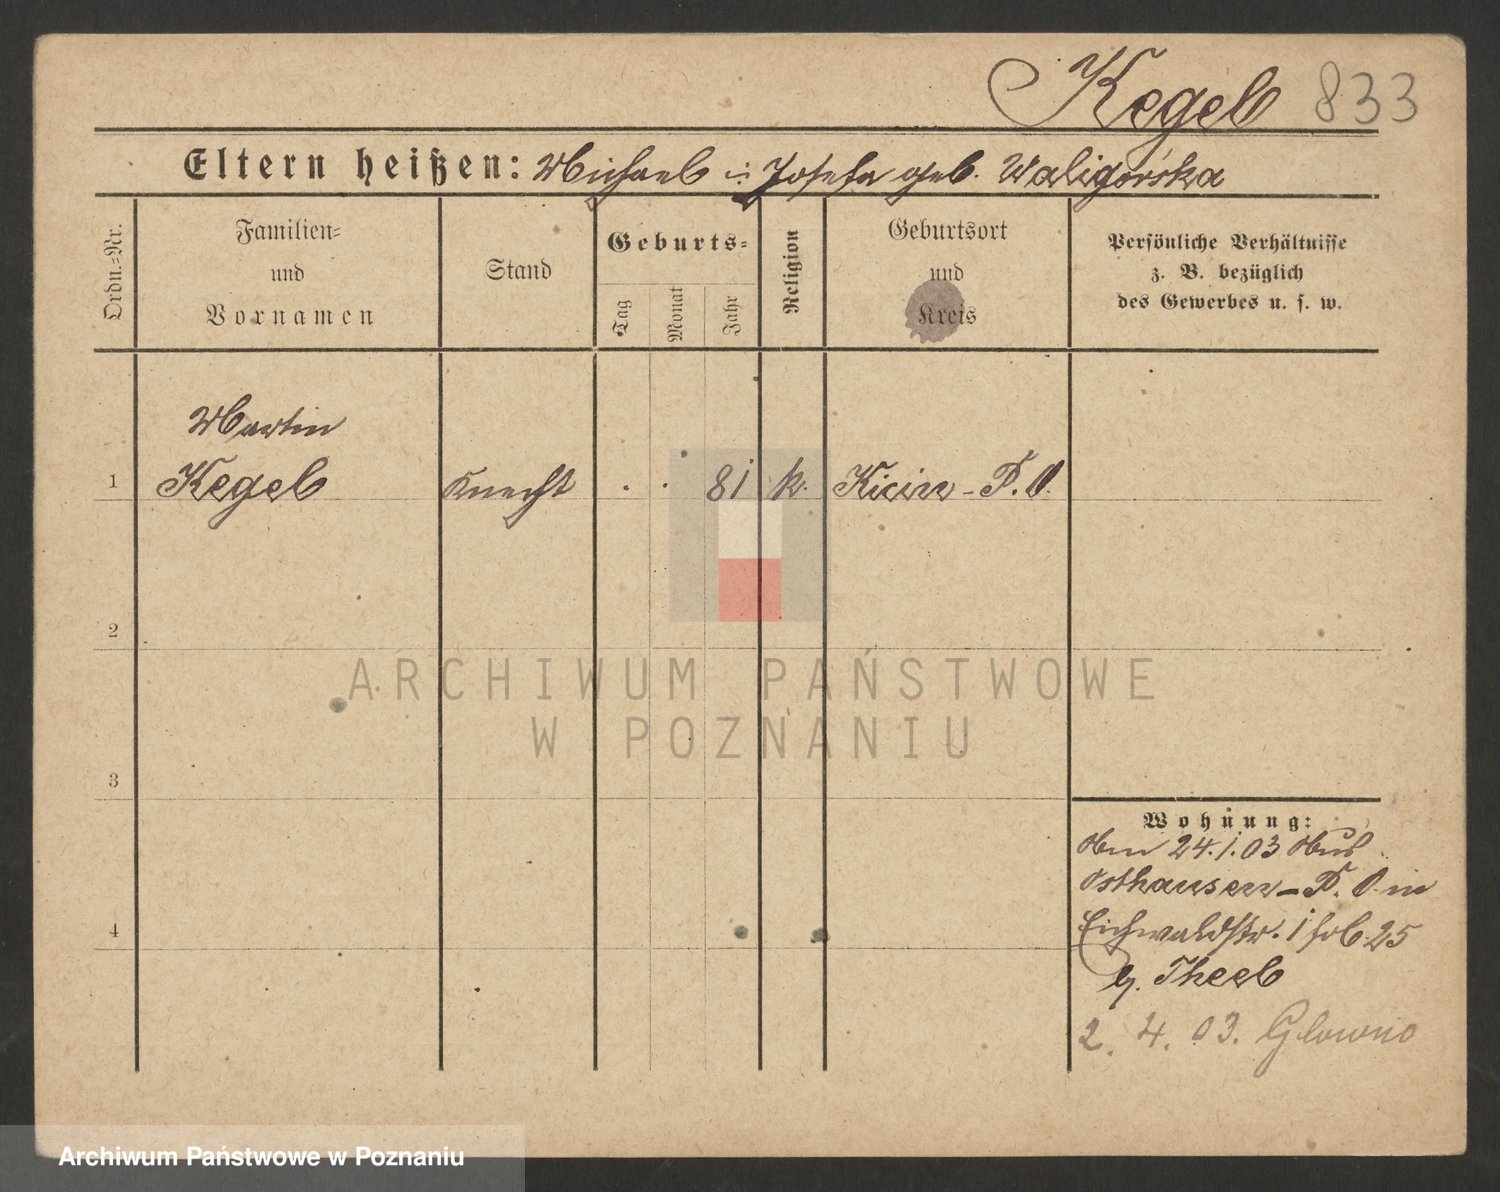 Kegel 833
Eltern heißen: Michael u. Josefa geb. Waligórska
Ordn.-Nr.
Familien-
und
Vornamen
Stand
Geburts-
Tag
Monat
Jahr
Religion
Geburtsort
und
Kreis
Persönliche Verhältnisse
z. B. bezüglich
des Gewerbes u. s. w.
Martin
1 Kegel Knecht . . 81 k. Kicin - P. O.
2
3
4
Wohnung:
Am 24.1.03 aus
Osthausen - P. O. in
Eichwaldstr. 1 25
b. Theel
2. 4. 03. Glowno
ARCHIWUM PAŃSTWOWE
W POZNANIU
Archiwum Państwowe w Poznaniu